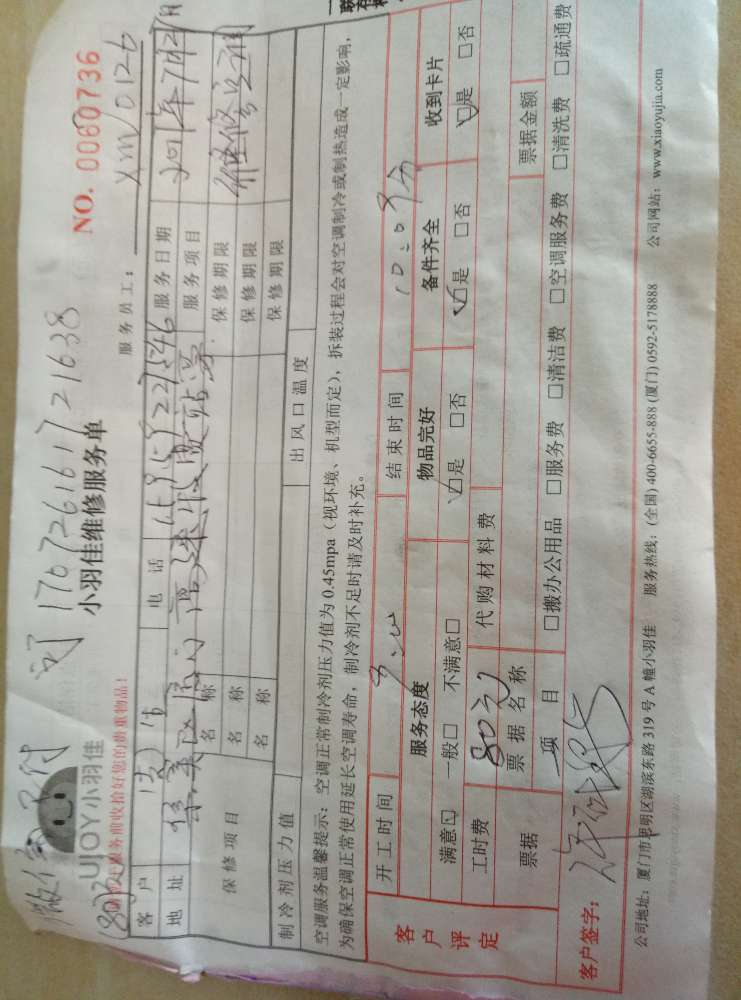 NO. 0060736
170726161721638
UJOY小羽佳
小羽佳维修服务单
服务员工： XM0126
请您上服务前收拾好您的贵重物品！
客户
电话
服务日期
地址
服务项目 维修空调
保修项目
名称
保修期限
名称
保修期限
名称
保修期限
制冷剂压力值
出风口温度
空调服务温馨提示：空调正常制冷剂压力值为 0.45mpa（视环境、机型而定），拆装过程会对空调制冷或制热造成一定影响，
为确保空调正常使用延长空调寿命，制冷剂不足时请及时补充。
客户评定
开工时间
结束时间
服务态度
物品完好
备件齐全
收到卡片
满意☑ 一般□ 不满意□
☑是 □否
☑是 □否
☑是 □否
工时费 80元
代购材料费
票据
票据名称
票据金额
项目
□搬办公用品 □服务费 □清洁费 □空调服务费 □清洗费 □疏通费
客户签字：
公司地址：厦门市思明区湖滨东路 319 号 A 幢小羽佳 服务热线：(全国) 400-6655-888 (厦门) 0592-5178888 公司网站：www.xiaoyujia.com